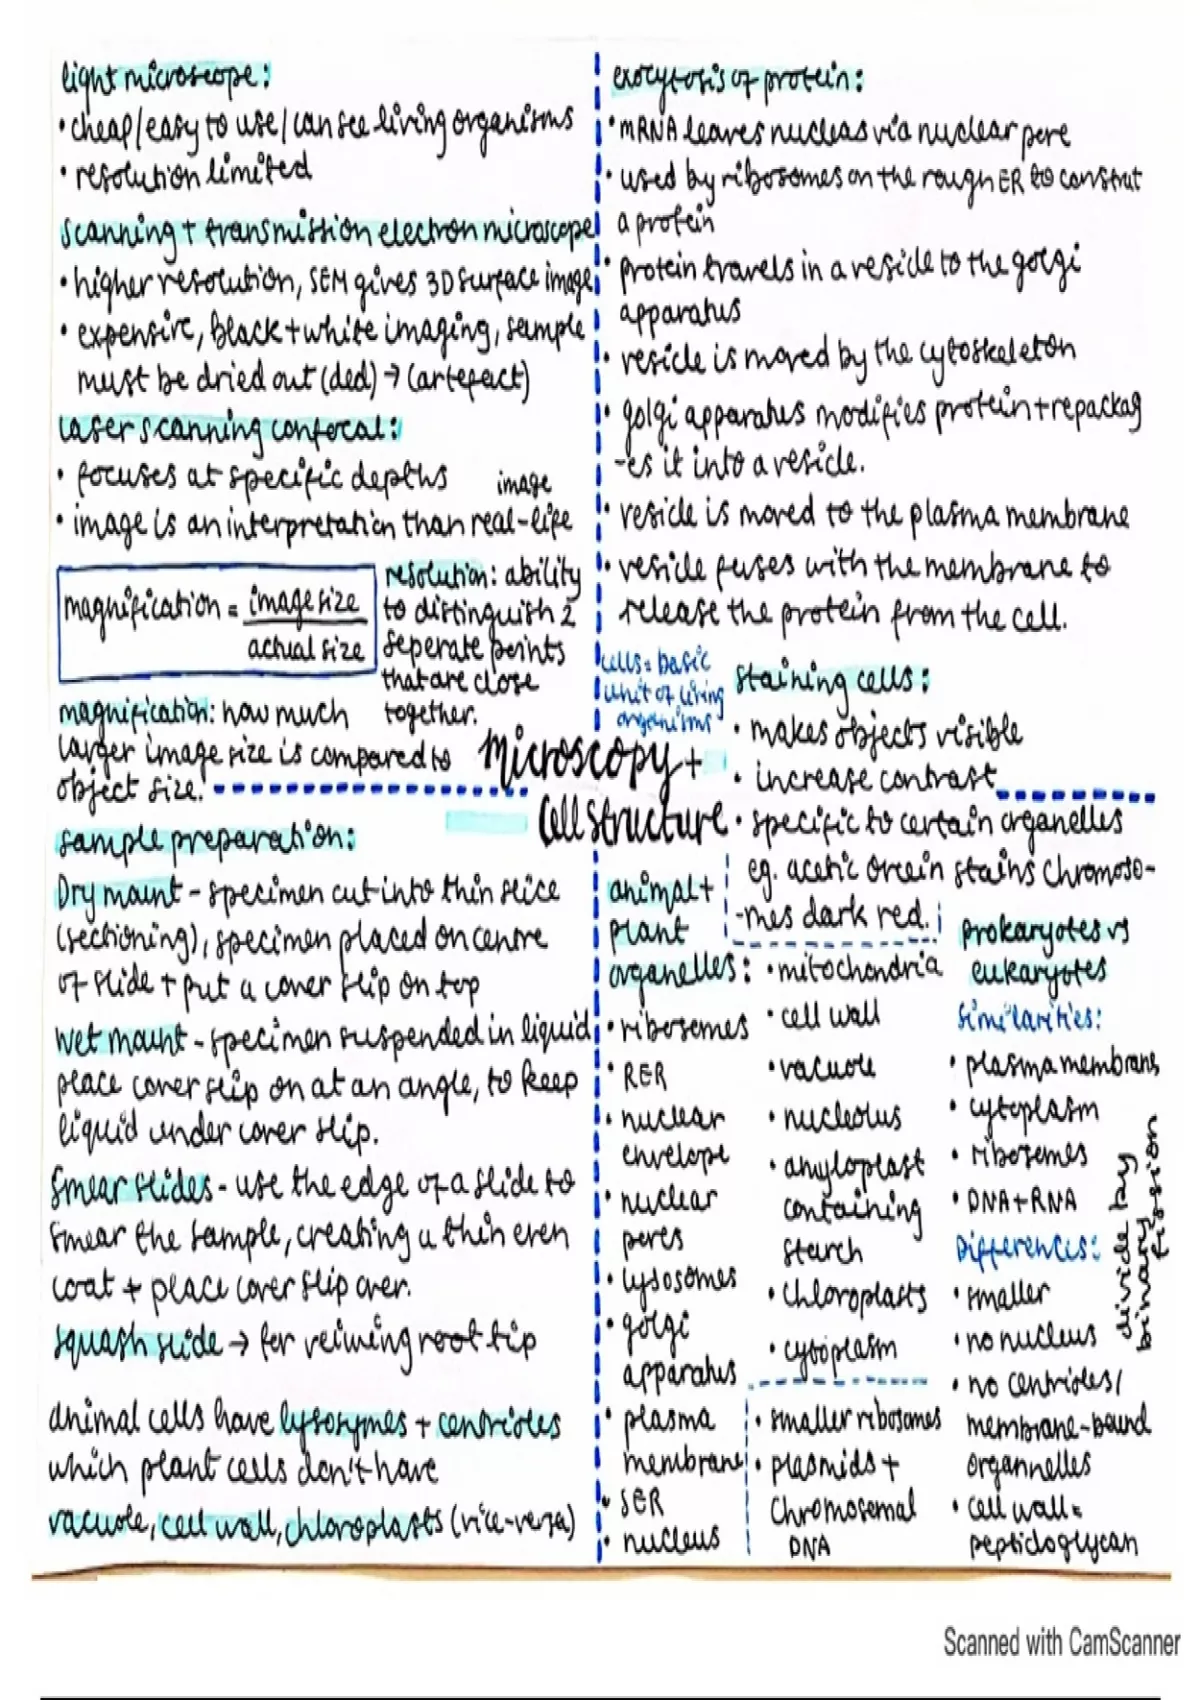 light microscope:
• cheap/easy to use/can see living organisms
• resolution limited
scanning + transmission electron microscope
• higher resolution, SEM gives 3D surface image
• expensive, black + white imaging, sample
must be dried out (ded) → (artefact)
laser scanning confocal:
• focuses at specific depths
image
• image is an interpretation than real-life
magnification = image size
actual size
resolution: ability
to distinguish 2
seperate points
that are close
together.
magnification: how much
larger image size is compared to
object size.
exocytosis of protein:
• mRNA leaves nucleas via nuclear pore
• used by ribosomes on the rough ER to construt
a protein
• protein travels in a vesicle to the golgi
apparatus
• vesicle is moved by the cytoskeleton
• golgi apparatus modifies protein + repackag
-es it into a vesicle.
• vesicle is moved to the plasma membrane
• vesicle fuses with the membrane to
release the protein from the cell.
cells = basic
unit of living
organisms
Microscopy +
Cell structure
staining cells:
• makes objects visible
• increase contrast
• specific to certain organelles
eg. acetic orcein stains chromoso-
-mes dark red.
sample preparation:
Dry mount - specimen cut into thin slice
(sectioning), specimen placed on centre
of slide + put a cover slip on top
Wet mount - specimen suspended in liquid
place cover slip on at an angle, to keep
liquid under cover slip.
Smear slides - use the edge of a slide to
smear the sample, creating a thin even
coat + place cover slip over.
squash slide → for veiwing root tip
animal cells have lysosymes + centrioles
which plant cells don't have
vacuole, cell wall, chloroplasts (vice-versa)
animal +
plant
organelles:
• ribosomes
• RER
• nuclear
envelope
• nuclear
pores
• lysosomes
• golgi
apparatus
• plasma
membrane
• SER
• nucleus
• mitochondria
• cell wall
• vacuole
• nucleolus
• amyloplast
containing
starch
• chloroplasts
• cytoplasm
• smaller ribosomes
• plasmids +
chromosomal
DNA
prokaryotes vs
eukaryotes
Similarities:
• plasma membrane
• cytoplasm
• ribosomes
• DNA + RNA
Differences:
• smaller
• no nucleus
• no centrioles/
membrane-bound
organnelles
• cell wall =
peptidoglycan
by
binary fission
Scanned with CamScanner